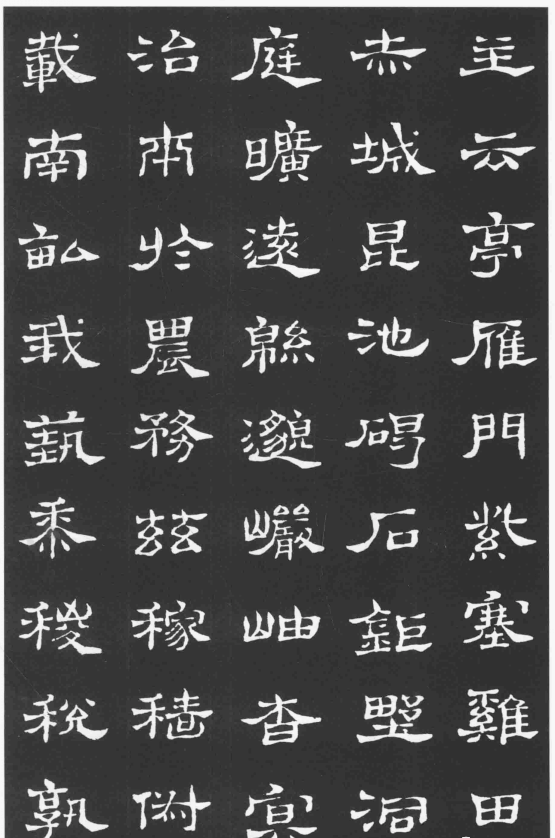 主云亭雁門紫塞雞田
赤城昆池碣石鉅野洞
庭曠遠緜邈巖岫杳冥
治本於農務茲稼穡俶
載南畝我藝黍稷稅孰